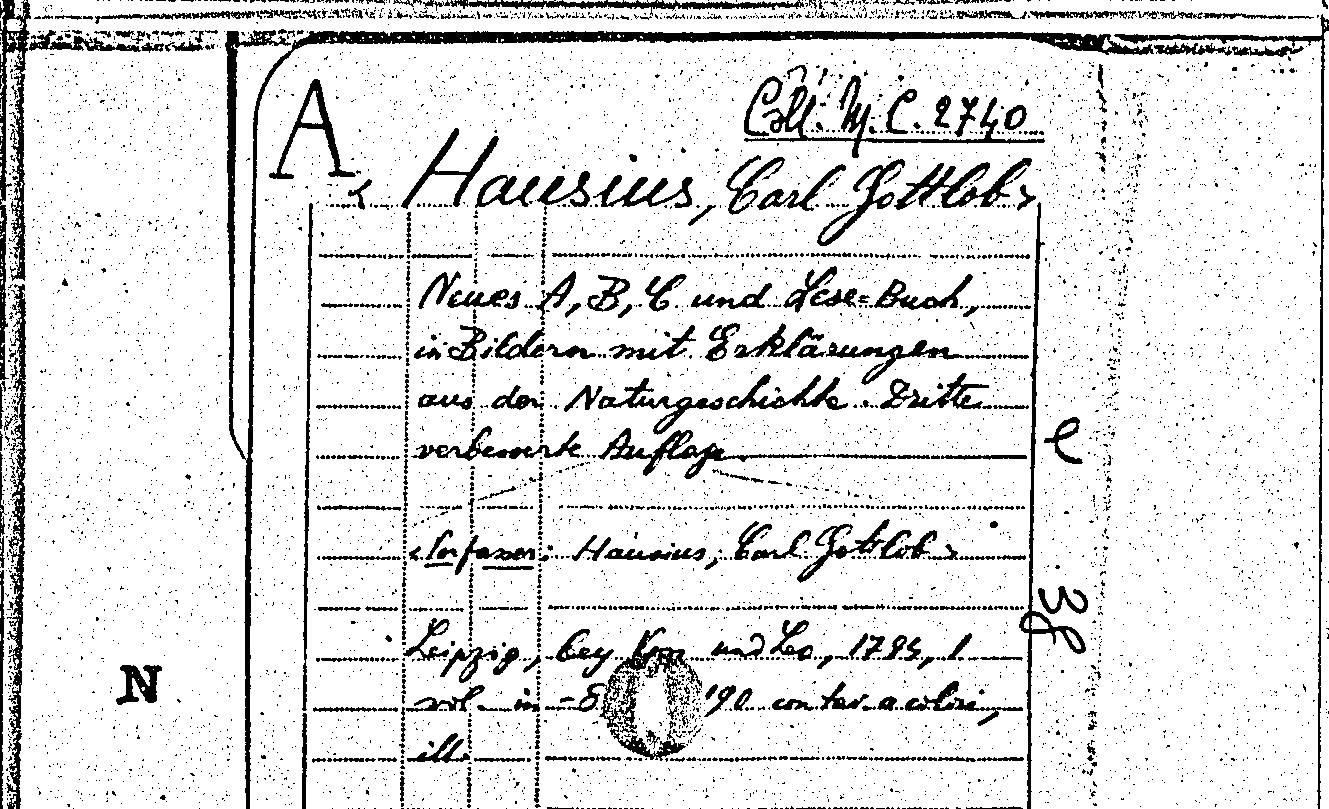 A
Coll. M. C. 2740
< Hausius, Carl Gottlob >
Neues A, B, C und Lese=Buch,
in Bildern mit Erklärungen
aus der Naturgeschichte. Dritte
verbesserte Auflage.
e
< Verfasser: Hausius, Carl Gottlob >
38
Leipzig, bey und Leo, 1
N
vol. in -8 190 con tav. a colori,
ill.